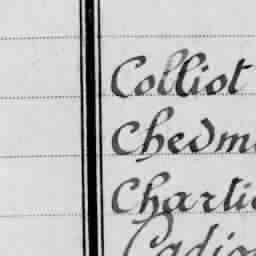 Colliot
Chedm
Charli
Cadio